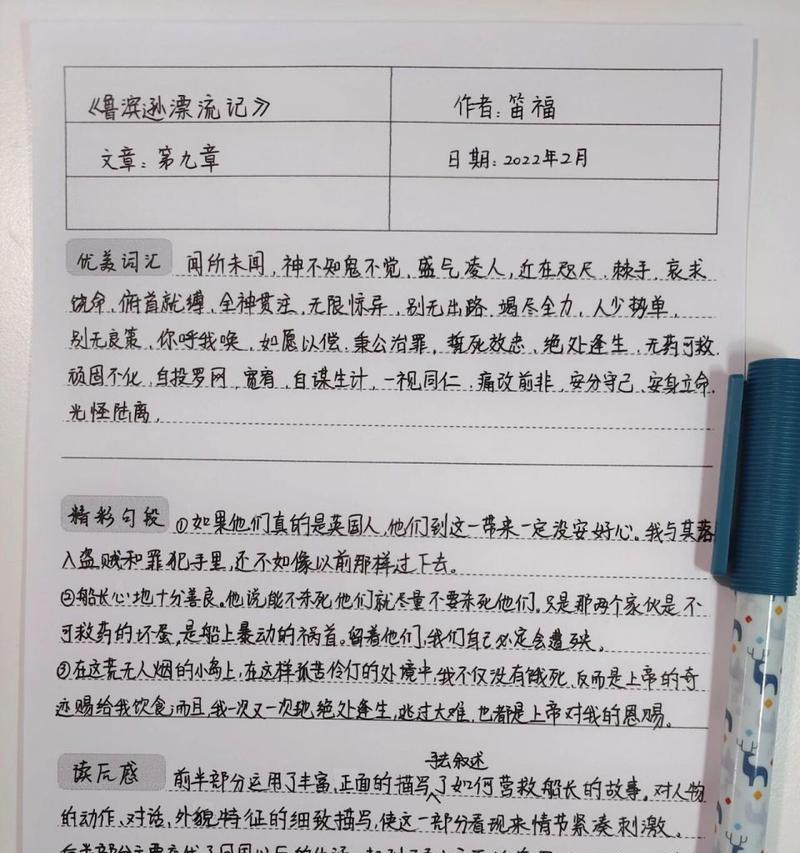 《鲁滨逊漂流记》
作者:笛福
文章:第九章
日期:2022年2月
优美词汇 闻所未闻,神不知鬼不觉、盛气凌人,近在咫尺、棘手、哀求
饶命、俯首就缚、全神贯注、无限惊异、别无出路、竭尽全力、人少势单、
别无良策、你呼我唤、如愿以偿、秉公治罪,誓死效忠、绝处逢生、无药可救、
顽固不化、自投罗网、宽宥、自谋生计、一视同仁、痛改前非、安分守己、安身立命、
光怪陆离,
精彩句段 ①如果他们真的是英国人,他们到这一带来一定没安好心。我与其落
入盗贼和罪犯手里,还不如像以前那样过下去。
②船长心地十分善良。他说能不杀死他们就尽量不要杀死他们。只是那两个家伙是不
可救药的坏蛋,是船上暴动的祸首。留着他们,我们自己必定会遭殃。
③在这荒无人烟的小岛上,在这样孤苦伶仃的处境中,我不仅没有饿死、反而是上帝的奇
迹赐给我饮食;而且,我一次又一次地绝处逢生,逃过大难,也都是上帝对我的恩赐。
读后感 前半部分运用了丰富、正面的描写手法叙述了如何营救船长的故事。对人物
的动作、对话,外貌特征的细致描写,使这一部分看现来情节紧凑刺激。